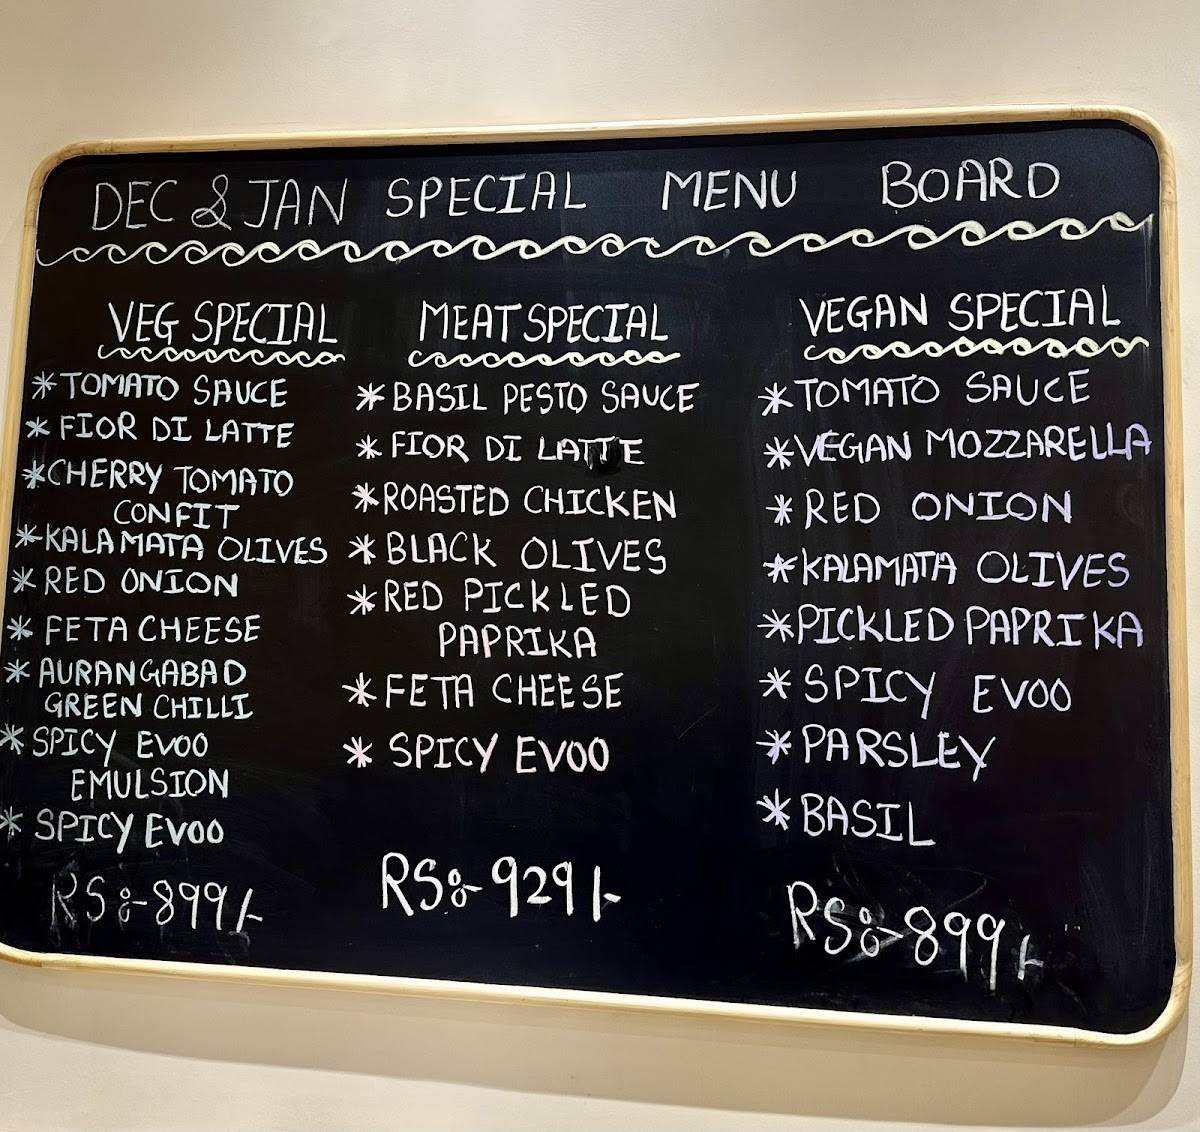 DEC & JAN SPECIAL MENU BOARD
VEG SPECIAL
* TOMATO SAUCE
* FIOR DI LATTE
* CHERRY TOMATO
CONFIT
* KALAMATA OLIVES
* RED ONION
* FETA CHEESE
* AURANGABAD
GREEN CHILLI
* SPICY EVOO
EMULSION
* SPICY EVOO
RS:-899/-
MEAT SPECIAL
* BASIL PESTO SAUCE
* FIOR DI LATTE
* ROASTED CHICKEN
* BLACK OLIVES
* RED PICKLED
PAPRIKA
* FETA CHEESE
* SPICY EVOO
RS:-929/-
VEGAN SPECIAL
* TOMATO SAUCE
* VEGAN MOZZARELLA
* RED ONION
* KALAMATA OLIVES
* PICKLED PAPRIKA
* SPICY EVOO
* PARSLEY
* BASIL
RS:-899/-